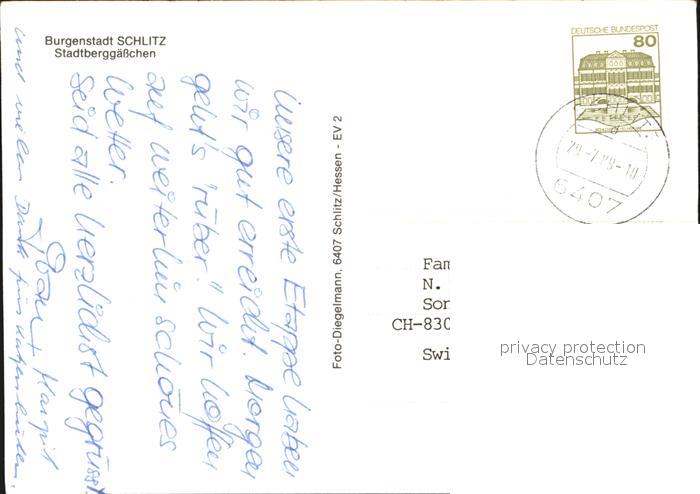 Burgenstadt SCHLITZ
Stadtberggäßchen
DEUTSCHE BUNDESPOST
80
29.-7.88-10
6407
Unsere erste Etappe haben
wir gut erreicht. Morgen
geht's "rüber". Wir hoffen
auf weiterhin schönes
Wetter.
Seid alle herzlichst gegrüsst
+ Margit
und vielen Dank fürs
Foto-Diegelmann, 6407 Schlitz/Hessen - EV 2
Fam
N.
Son
CH-830
Swi
privacy protection
Datenschutz